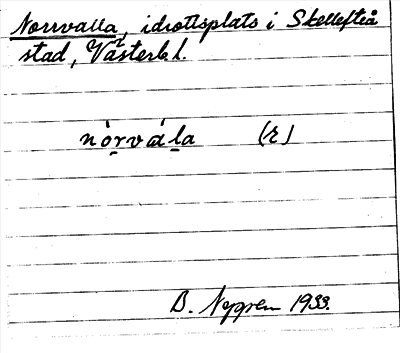 Norrvalla, idrottsplats i Skellefteå
stad, Västerb l.
nòrvála (r)
B. Nygren 1933.